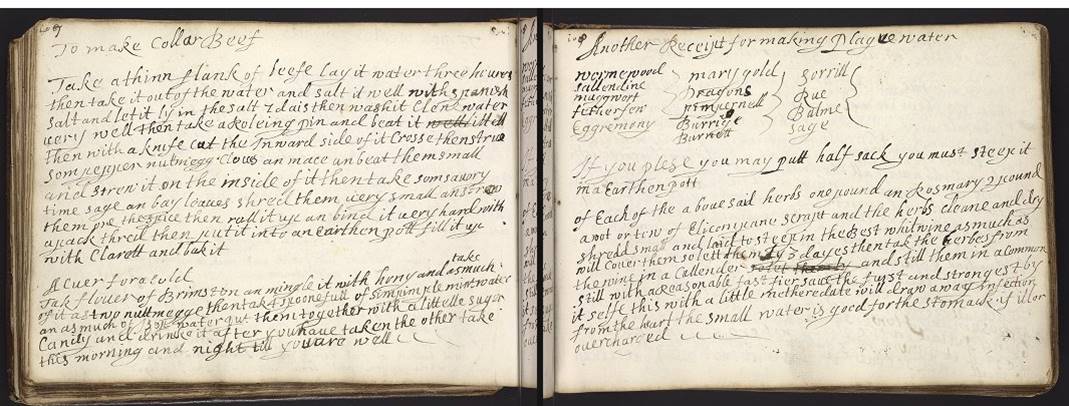 To make Collar Beef
Take a thinn flank of beefe lay it water three houres
then take it out of the water and salt it well with spanish
salt and let it ly in the salt 2 dais then wash it Clene water
very well then take a Roleing pin and beat it well littell
then with a knife Cut the Inward side of it Crosse then strue
som pepper nutmegg Clous an mace an beat them small
and strew it on the inside of it then take som savory
time sage an bay leaves shred them very small an strew
them the spice then roul it up an bind it very hard with
a pack thred then putt it into an Earthen pott fill it up
with Clarott and bak it
A Cuer for a Cold
take
Tak flower of Brimston an mingle it with hony and as much
of it as two nuttmegge then tak 4 spoonefull of mint water
an as much of water put them together with a littelle sugar
Candy and drinke it after you have taken the other take
this morning and night till you are well
108
Another Receipt for making Plague water
wormewood mary gold sorrill
sallendine Dragons Rue
muggwort pimpernell Balme
fetherfew Burrige sage
Eggremony Burnett
If you plese you may putt half sack you must steep it
in a Earthen pott
of Each of the aboue said herbs one pound an Rosmary 2 pound
a root or tow of Elicompane scrapt and the herbs cleane and dry
shredd small and laid to steep in the Best whit wine as much as
will Couer them so lett them ly 3 dayes then tak the herbes from
the wine in a Cullender and still them in a Common
still with a Reasonable fast fier save the furst and strongest by
it selfe this with a little metheredate will draw away infection
from the heart the small water is good for the stomack if ill or
overcharged